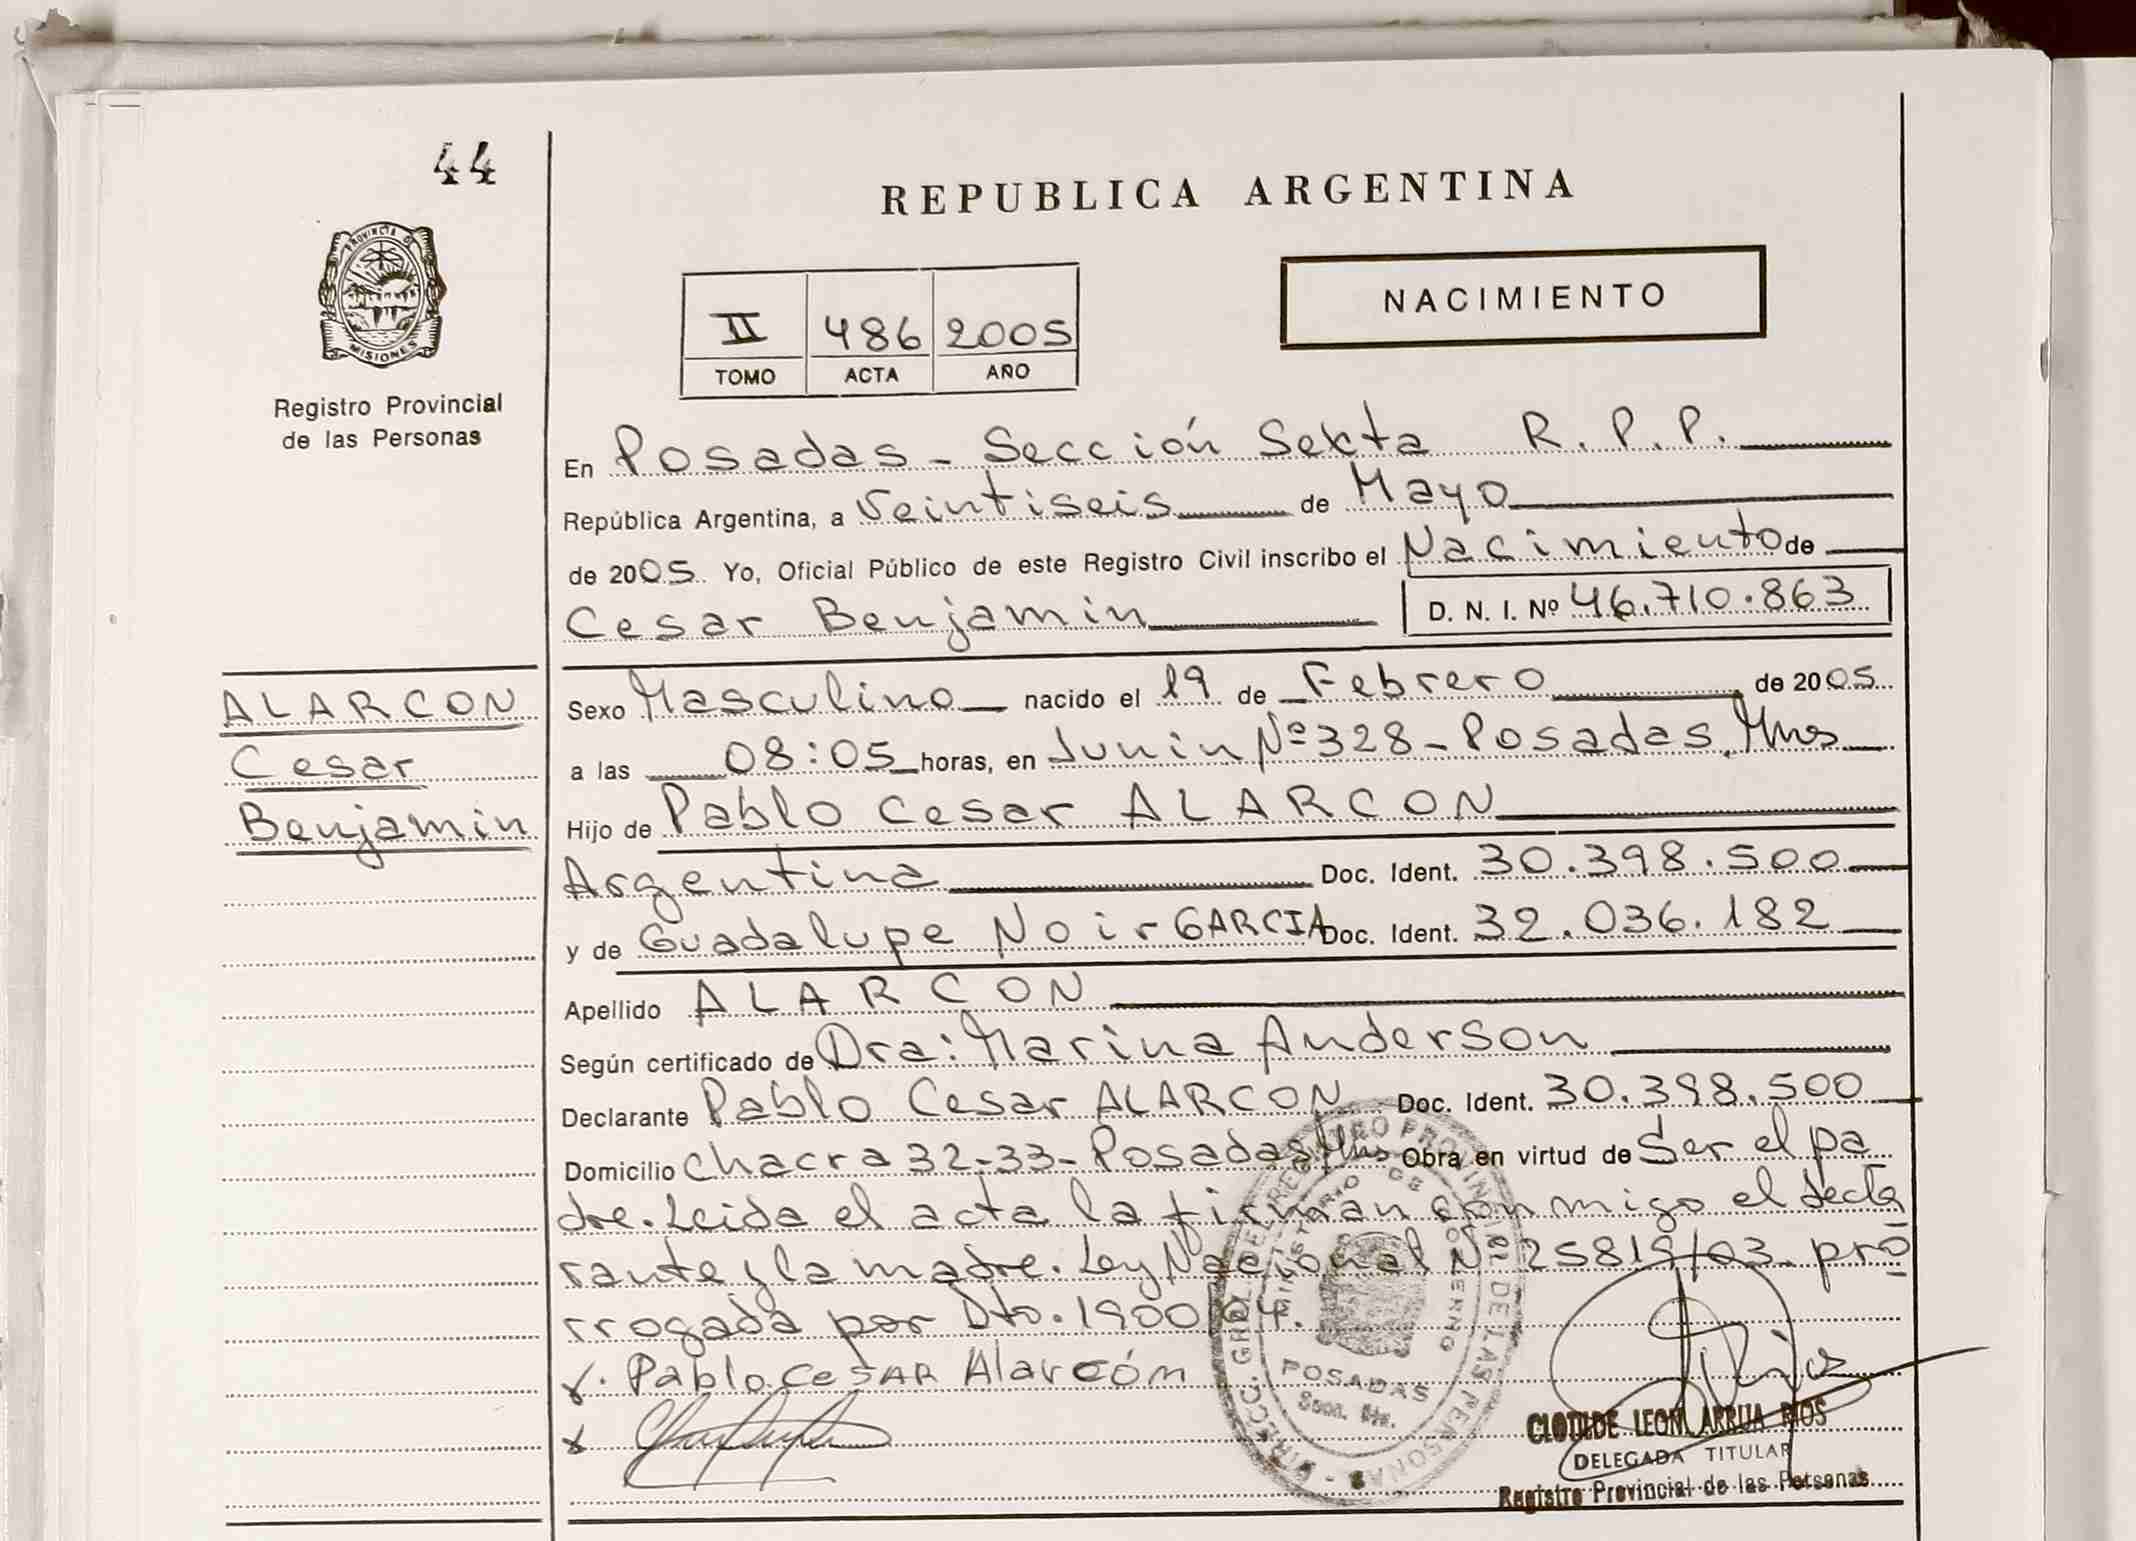 44
REPUBLICA ARGENTINA
PROVINCIA DE
MISIONES
Registro Provincial
de las Personas
II 486 2005
TOMO ACTA AÑO
NACIMIENTO
En Posadas - Sección Sexta R.P.P.
República Argentina, a veintiseis de Mayo
de 2005. Yo, Oficial Público de este Registro Civil inscribo el Nacimiento de
Cesar Benjamin D. N. I. Nº 46.710.863
ALARCON
Cesar
Benjamin
Sexo Masculino nacido el 19 de Febrero de 2005
a las 08:05 horas, en Junin Nº 328 - Posadas, Mnes
Hijo de Pablo Cesar ALARCON
Argentina Doc. Ident. 30.398.500
y de Guadalupe Noir GARCIA Doc. Ident. 32.036.182
Apellido ALARCON
Según certificado de Dra: Marina Anderson
Declarante Pablo Cesar ALARCON Doc. Ident. 30.398.500
Domicilio chacra 32-33 - Posadas, Mns Obra en virtud de Ser el pa
dre. Leida el acta la firman conmigo el decla
rante y la madre. Ley Nacional Nº 25819/03 pro
rrogada por Dto. 1900/04.
x. Pablo Cesar Alarcón
x
DIRECC. GRAL. DEL REGISTRO PROVINCIAL DE LAS PERSONAS
MINISTERIO DE GOBIERNO
POSADAS
CLOTILDE LEON ARRUA RIOS
DELEGADA TITULAR
Registro Provincial de las Personas